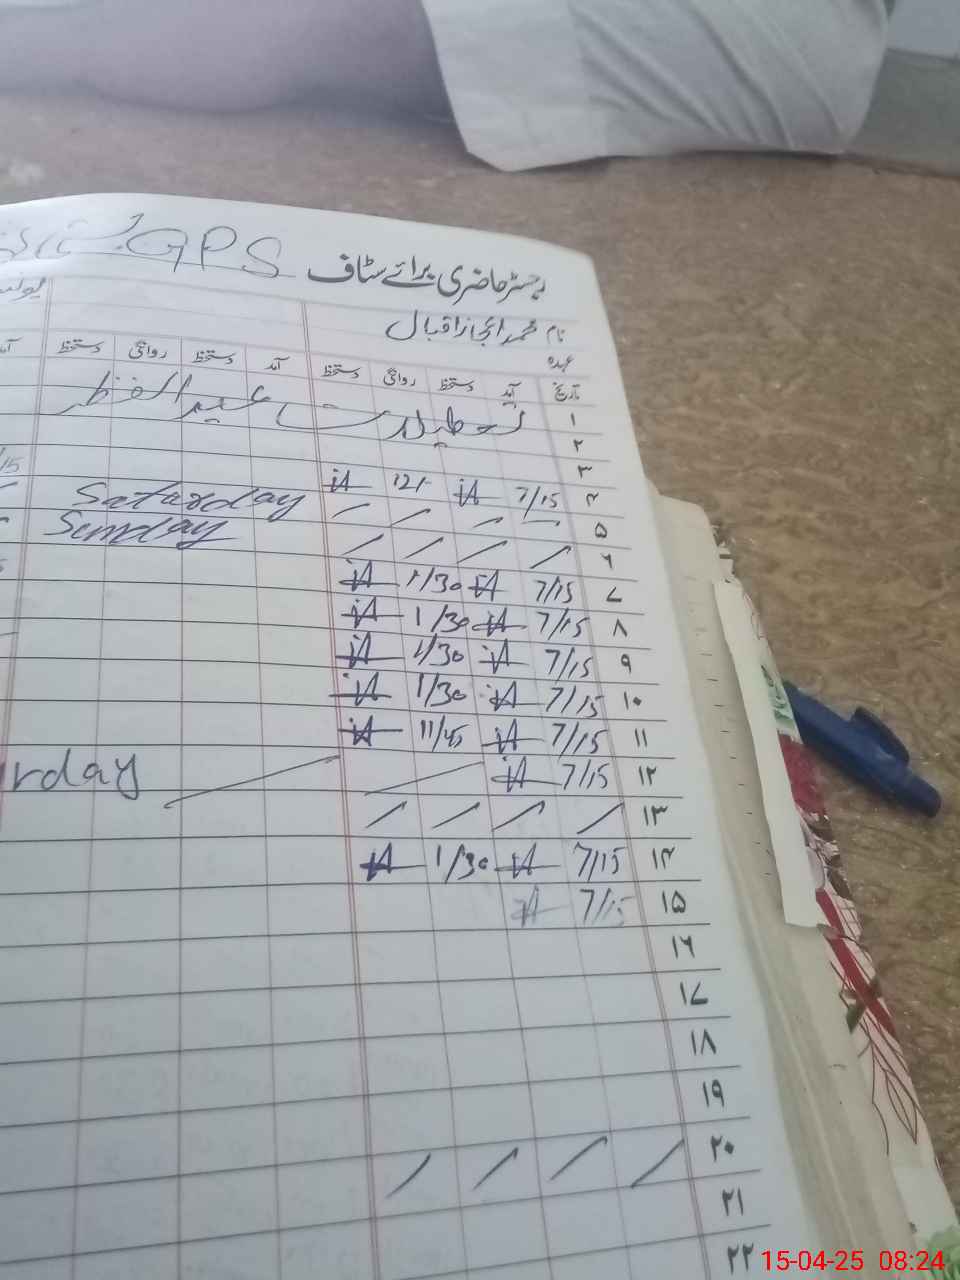 GPS
رجسٹر حاضری برائے سٹاف
نام محمد اعجاز اقبال
عہدہ
تاریخ آمد دستخط روانگی دستخط آمد دستخط روانگی دستخط
۱ تعطیلات عید الفطر
۲
۳
۴ 7/15 iA 12/- iA
۵ Saturday
۶ Sunday
۷ 7/15 iA 1/30 iA
۸ 7/15 iA 1/30 iA
۹ 7/15 iA 1/30 iA
۱۰ 7/15 iA 1/30 iA
۱۱ 7/15 iA 11/45 iA
۱۲ 7/15 iA rday
۱۳
۱۴ 7/15 iA 1/30 iA
۱۵ 7/15 iA
۱۶
۱۷
۱۸
۱۹
۲۰
۲۱
۲۲
15-04-25 08:24